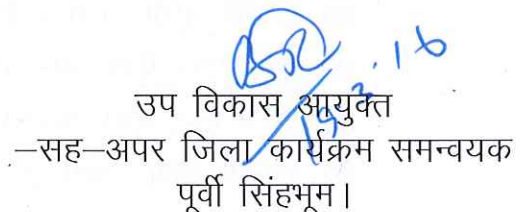 19.3.16
उप विकास आयुक्त
–सह–अपर जिला कार्यक्रम समन्वयक
पूर्वी सिंहभूम।